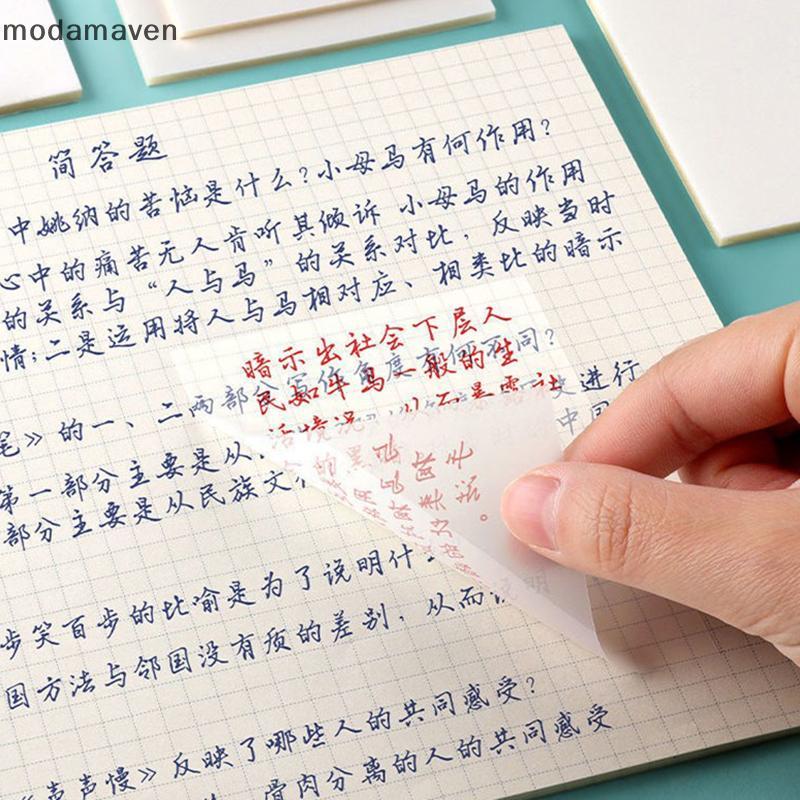 modamaven
简答题
中姚纳的苦恼是什么?小母马有何作用?
心中的痛苦无人肯听其倾诉 小母马的作用
的关系与“人与马”的关系对比，反映当时
情;二是运用将人与马相对应、相类比的暗示
暗示出社会下层人
民如牛马一般的生
活境况
笔》的一、二两部分写作角度有何不同?
第一部分主要是从 史进行
部分主要是从民族文 中国
步笑百步的比喻是为了说明什
国方法与邻国没有质的差别，从而说明
《声声慢》反映了哪些人的共同感受?
骨肉分离的人的共同感受